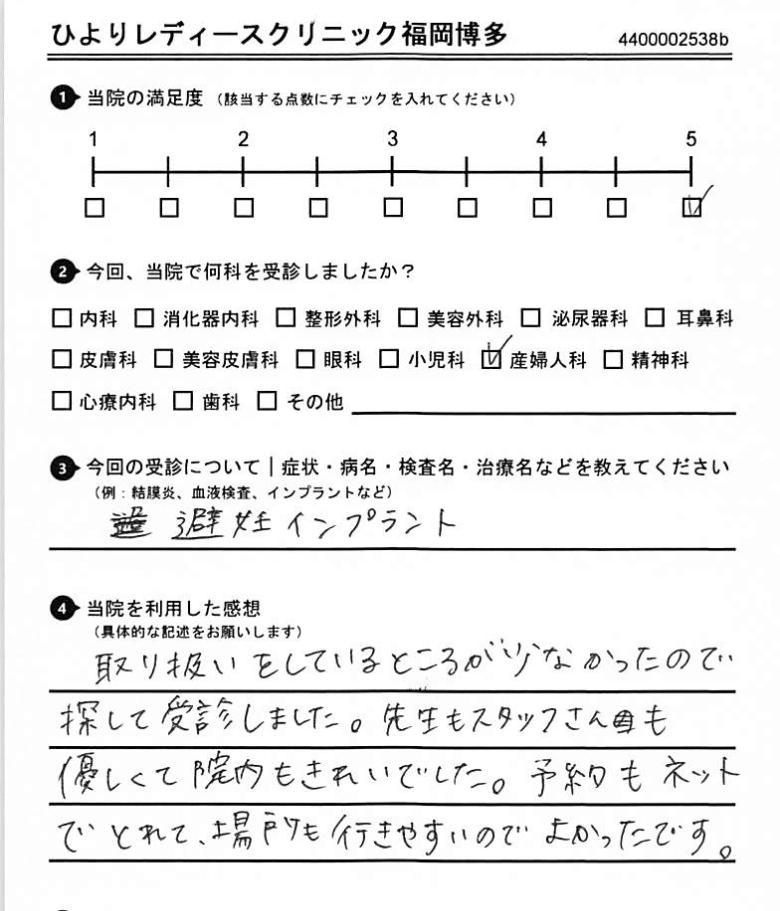 ひよりレディースクリニック福岡博多 4400002538b
1 当院の満足度 (該当する点数にチェックを入れてください)
1 2 3 4 5
2 今回、当院で何科を受診しましたか?
内科 消化器内科 整形外科 美容外科 泌尿器科 耳鼻科
皮膚科 美容皮膚科 眼科 小児科 産婦人科 精神科
心療内科 歯科 その他
3 今回の受診について|症状・病名・検査名・治療名などを教えてください
(例:結膜炎、血液検査、インプラントなど)
避妊インプラント
4 当院を利用した感想
(具体的な記述をお願いします)
取り扱いをしているところが少なかったので
探して受診しました。先生もスタッフさんも
優しくて院内もきれいでした。予約もネット
でとれて、場所も行きやすいのでよかったです。